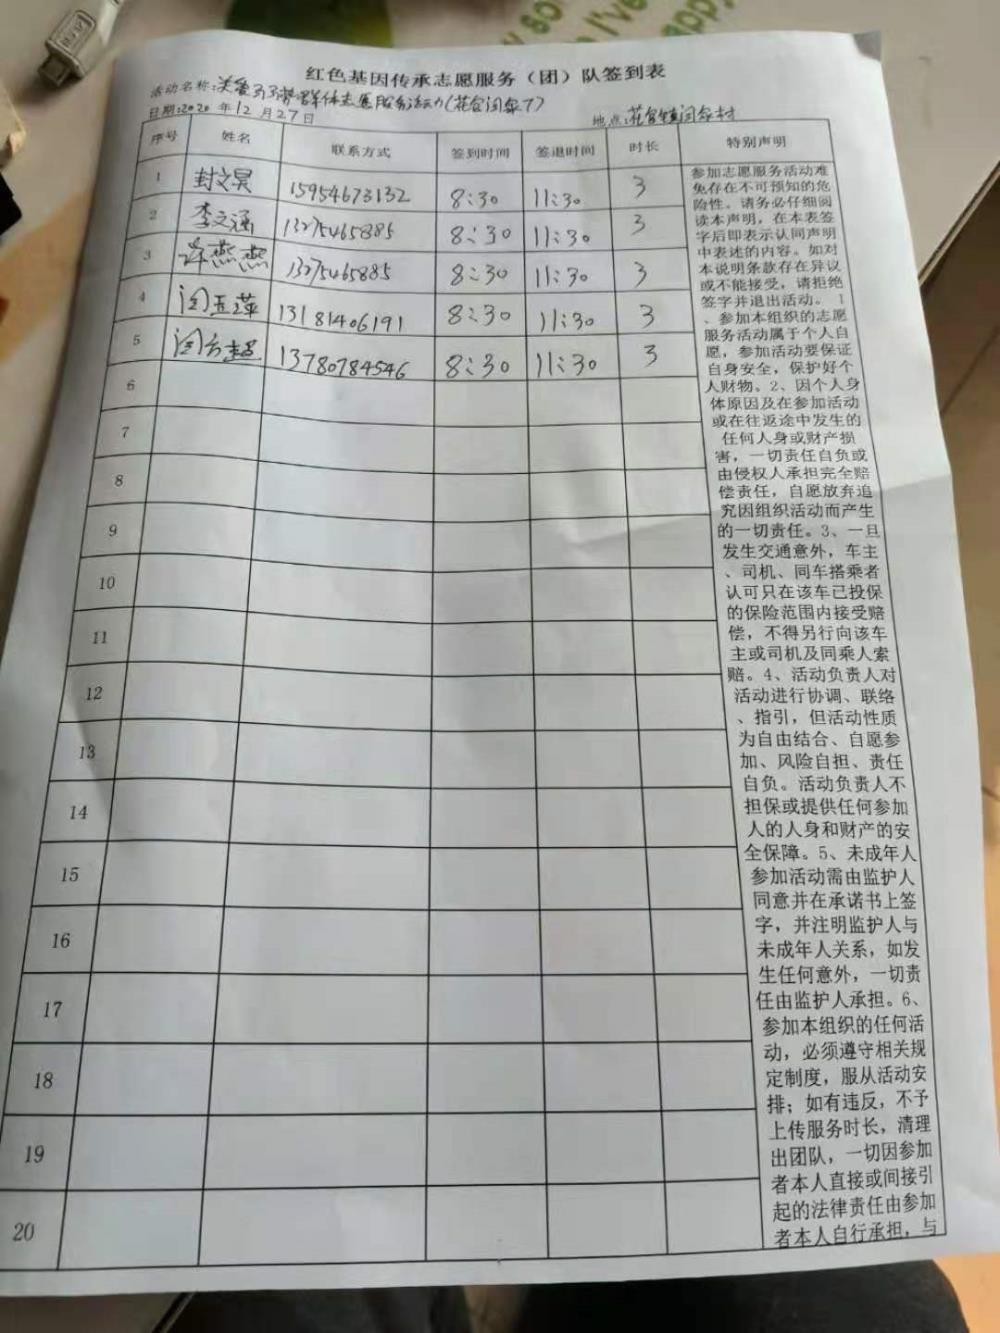 红色基因传承志愿服务（团）队签到表
活动名称:关爱 群体志愿服务活动(花官闫家7)
日期:2020 年 12 月 27 日 地点:花官镇闫家村
序号 姓名 联系方式 签到时间 签退时间 时长 特别声明
1 封文昊 15954673132 8:30 11:30 3
2 李文涵 13275465885 8:30 11:30 3
3 燕燕 13275465885 8:30 11:30 3
4 闫玉萍 13181406191 8:30 11:30 3
5 闫方超 13780784546 8:30 11:30 3
6
7
8
9
10
11
12
13
14
15
16
17
18
19
20
参加志愿服务活动难
免存在不可预知的危
险性。请务必仔细阅
读本声明，在本表签
字后即表示认同声明
中表述的内容。如对
本说明条款存在异议
或不能接受，请拒绝
签字并退出活动。 1
、参加本组织的志愿
服务活动属于个人自
愿，参加活动要保证
自身安全，保护好个
人财物。2、因个人身
体原因及在参加活动
或在往返途中发生的
任何人身或财产损
害，一切责任自负或
由侵权人承担完全赔
偿责任，自愿放弃追
究因组织活动而产生
的一切责任。3、一旦
发生交通意外，车主
、司机、同车搭乘者
认可只在该车已投保
的保险范围内接受赔
偿，不得另行向该车
主或司机及同乘人索
赔。4、活动负责人对
活动进行协调、联络
、指引，但活动性质
为自由结合、自愿参
加、风险自担、责任
自负。活动负责人不
担保或提供任何参加
人的人身和财产的安
全保障。5、未成年人
参加活动需由监护人
同意并在承诺书上签
字，并注明监护人与
未成年人关系，如发
生任何意外，一切责
任由监护人承担。6、
参加本组织的任何活
动，必须遵守相关规
定制度，服从活动安
排；如有违反，不予
上传服务时长，清理
出团队，一切因参加
者本人直接或间接引
起的法律责任由参加
者本人自行承担，与